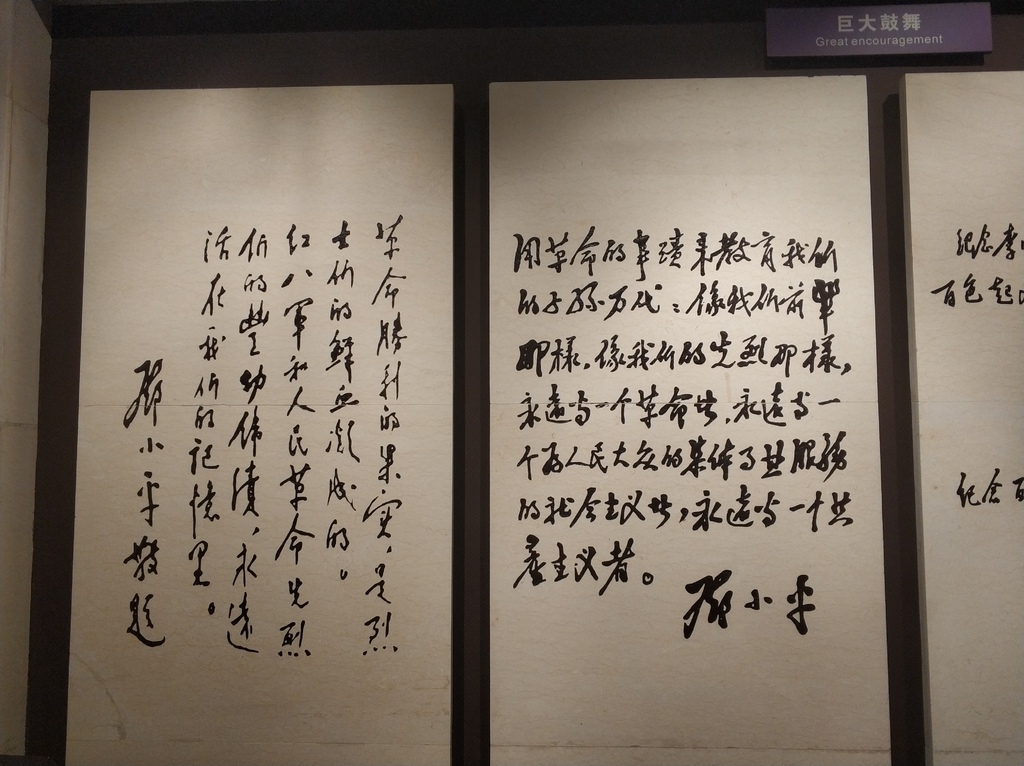 巨大鼓舞
Great encouragement
革命勝利的果实，是烈
士们的鲜血凝成的。
红八軍和人民革命先烈
们的豐功偉績，永遠
活在我们的記憶里。
鄧小平敬題
用革命的事蹟来教育我们
的子孫万代：像我们前輩
那樣，像我们的先烈那樣，
永遠当一个革命者，永遠当一
个为人民大众的集体事业服務
的社会主义者，永遠当一个共
產主义者。
鄧小平
紀念李
百色起
纪念